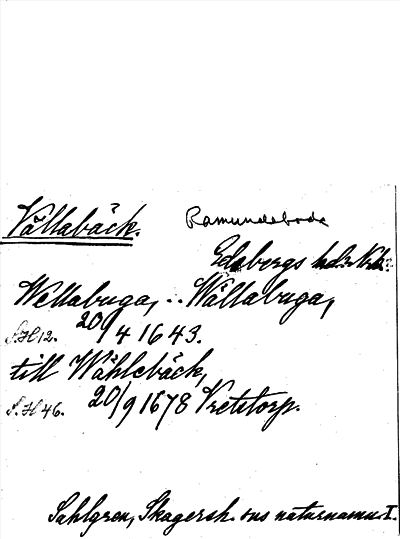 Vällabäck.
Ramundeboda
Edsbergs hd.
Wellabuga, .. Wällabuga,
S.H 12. 20/4 1643.
till Wähleback,
S.H 46. 20/9 1678 Vretstorp.
Sahlgren, Skagersh. ons naturnamn I.